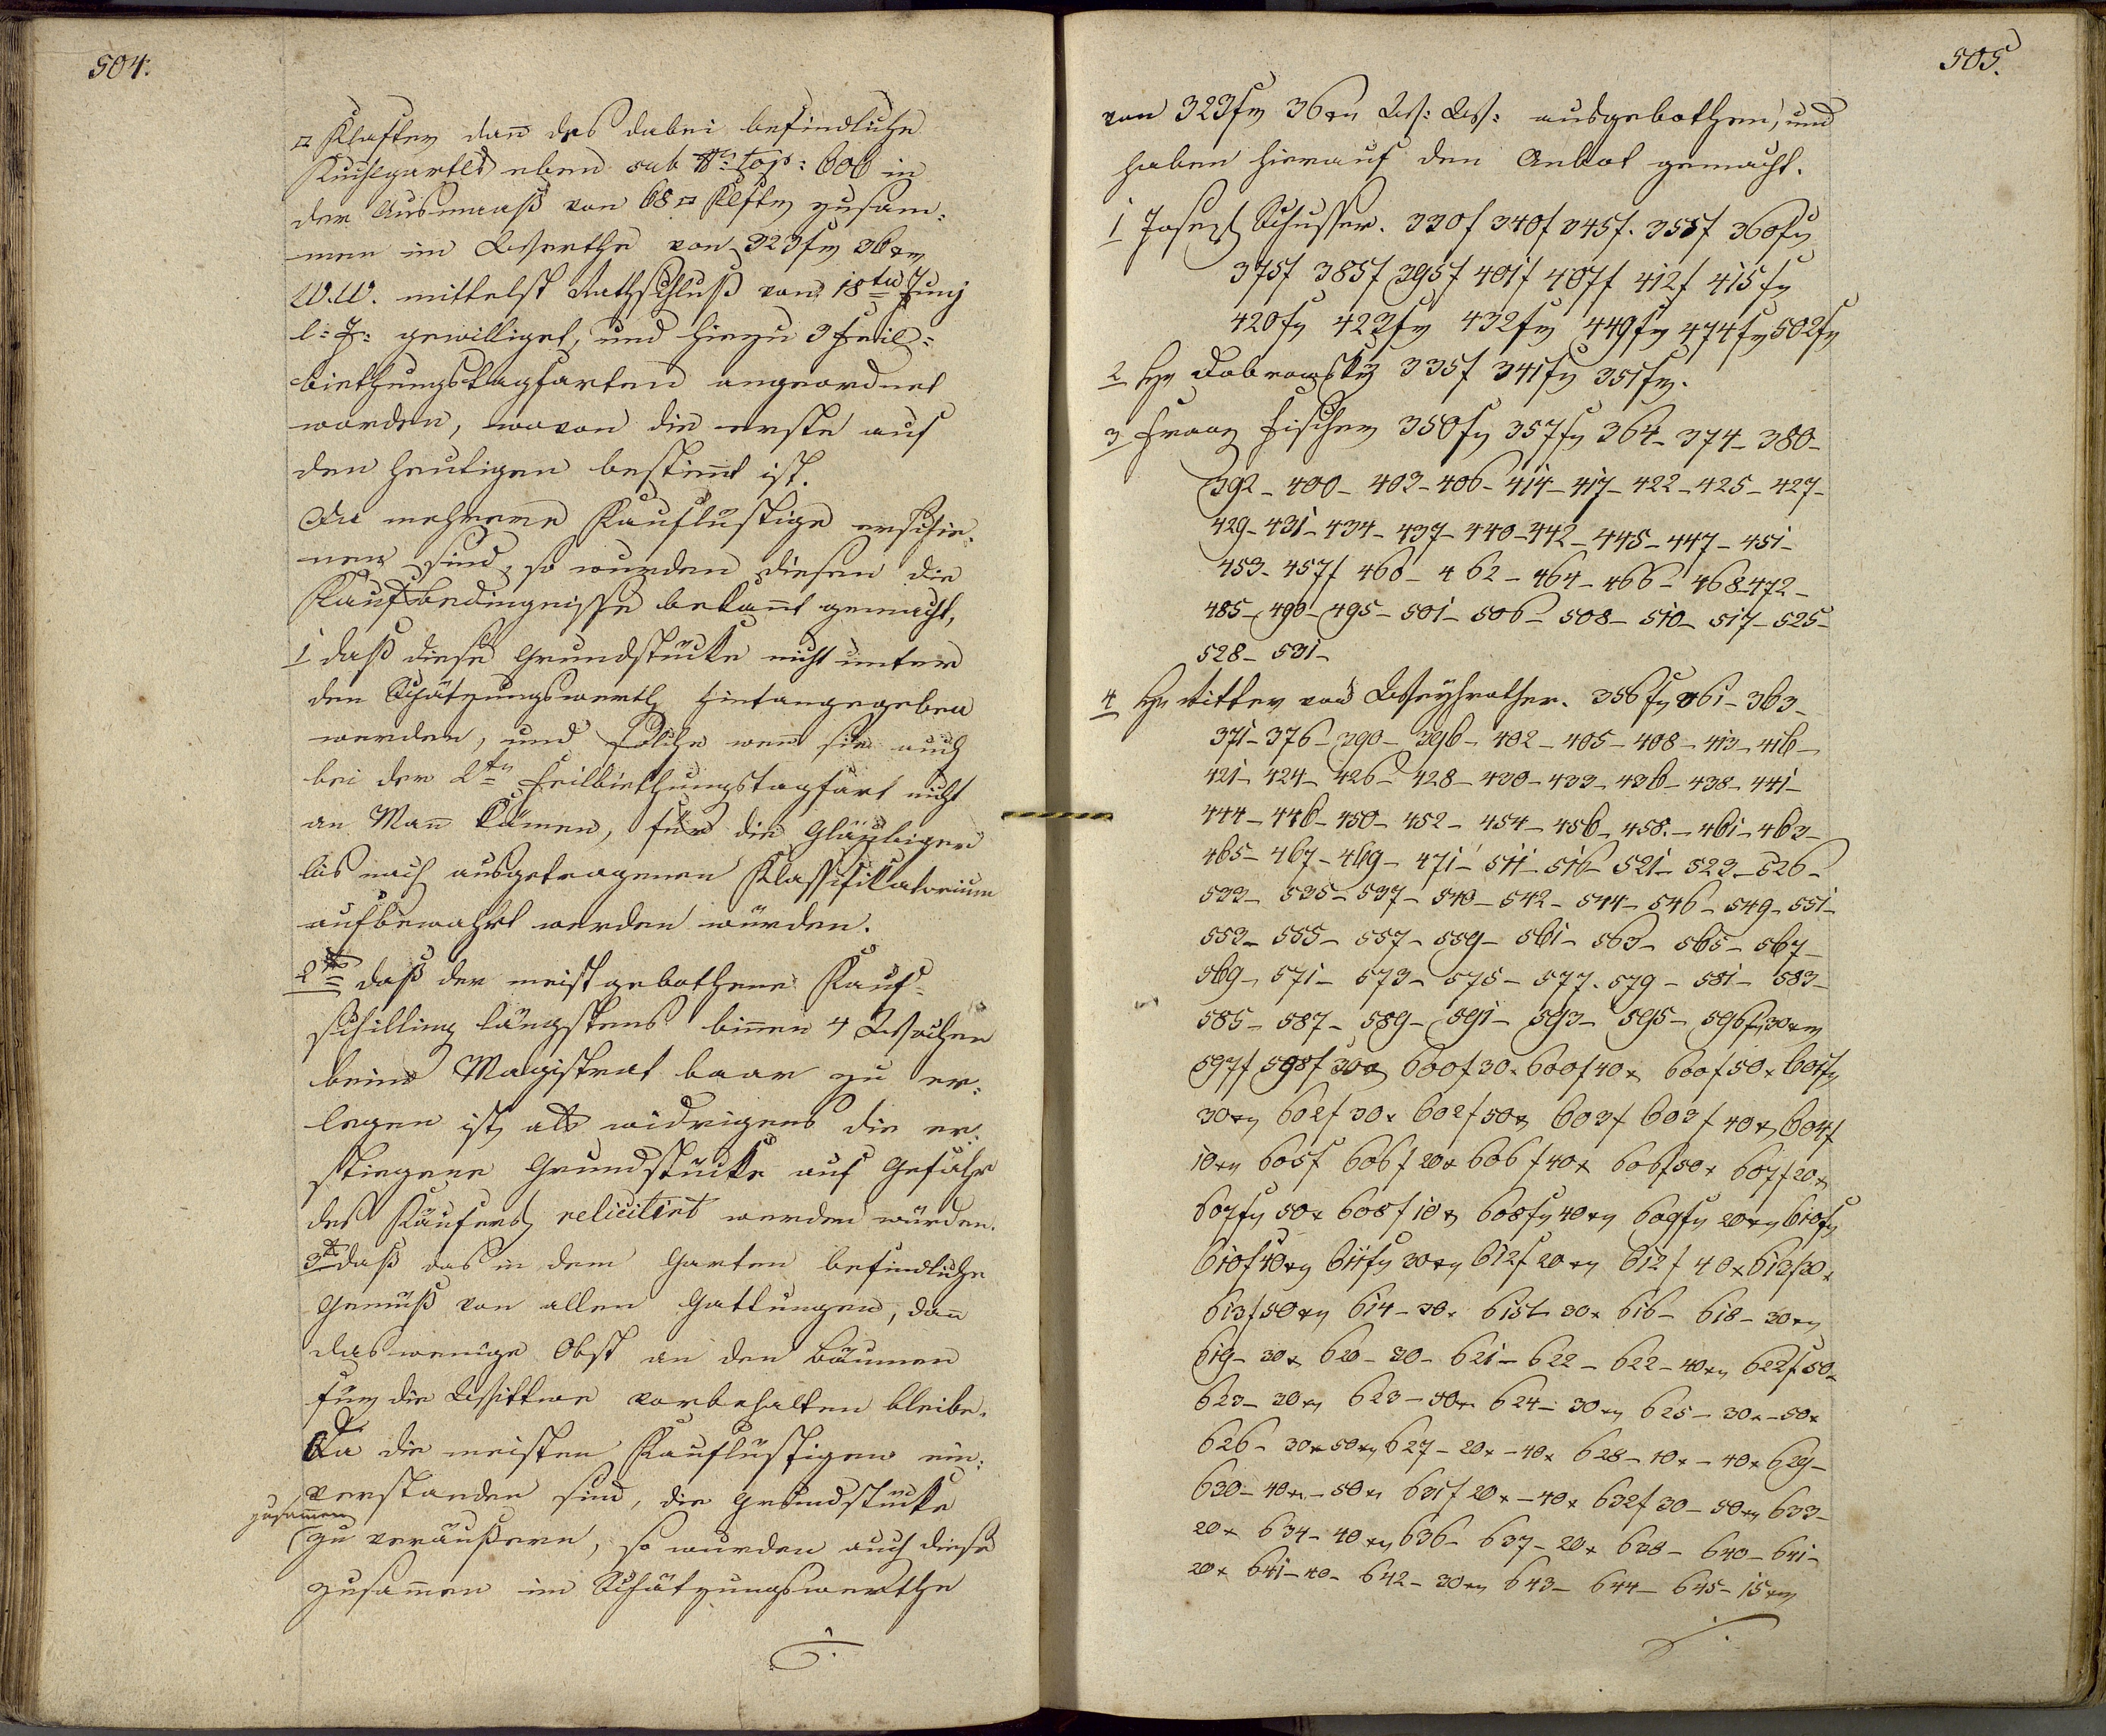 504.
□ Klafter dan̄ das dabei befindliche
Kuchlgartl eben sub N: top: 606 in
der Ausmaaß von 68 □ Klfter zusam:
men im Werthe von 323 fr 36 xr
W.W. mittelst Rathschluß vom 18ten Juny
l: J: gewilliget, und hiezu 3 Feil:
biethungstagfarten angeordnet
worden, wovon die erste auf
den heutigen bestim̄t ist.
Da mehrere Kauflustige erschie:
nen sind, so wurden diesen die
Kaufsbedingnisse bekan̄t gemacht,
1 daß diese Grundstücke nicht unter
den Schätzungswerth hintangegeben
werden, und solche wen̄ sie auch
bei der 2ten Feilbiethungstagfart nicht
an Man̄ kämen, für die Gläubiger
bis nach ausgetragenen Klassifikatorium
aufbewahrt werden würden.
2tens daß der meistgebothene Kauf=
schilling längstens bin̄en 4 Wochen
beim Magistrat baar zu er:
legen ist, als widrigens die er:
stiegene Grundstücke auf Gefahr
des Käufers relicitirt werden würden.
3t daß das in dem Garten befindliche
Gemüß von allen Gattungen, dan̄
das wenige Obst an den Bäumen
für die Wittwe vorbehalten bleibe.
Da die meisten Kauflustigen ein:
verstanden sind, die Grundstücke
zusam̄en
zu veräußern, so wurden auch diese
zusam̄en im Schätzungswerthe
505.
von 323 fr 36 xr W: W: ausgebothen, und
haben hierauf den Anbot gemacht.
1 Joseph Schusser. 330 f 340 f 345 f. 355 f 360 fr
375 f 385 f 395 f 401 f 407 f 412 f 415 fr
420 fr 423 fr 432 fr 449 fr 474 fr 502 fr
2 Hr Dobrowsky 335 f 341 fr 351 fr.
3 Franz Fischer 350 fr 357 fr 364 - 374 - 380 -
392 - 400 - 403 - 406 - 414 - 417 - 422 - 425 - 427 -
429 - 431 - 434 - 437 - 440 - 442 - 445 - 447 - 451 -
453 - 457 f 460 - 462 - 464 - 466 - 468 - 472 -
485 - 490 - 495 - 501 - 506 - 508 - 510 - 517 - 525 -
528 - 531 -
4 Hr Ritter von Weyhrother. 356 fr 361 - 363 -
371 - 376 - 390 - 396 - 402 - 405 - 408 - 413 - 416 -
421 - 424 - 426 - 428 - 430 - 433 - 436 - 438 - 441 -
444 - 446 - 450 - 452 - 454 - 456 - 458. - 461 - 463 -
465 - 467 - 469 - 471 - 511 - 516 - 521 - 523 - 526 -
533 - 535 - 537 - 540 - 542 - 544 - 546 - 549 - 551 -
553 - 555 - 557 - 559 - 561 - 563 - 565 - 567 -
569 - 571 - 573 - 575 - 577 - 579 - 581 - 583 -
585 - 587 - 589 - 591 - 593 - 595 - 596 fr 30 xr
597 f 598 f 30 x 600 f 30 x 600 f 40 x 600 f 50 x 601 fr
30 xr 602 f 30 x 602 f 50 x 603 f 603 f 40 x 604 f
10 xr 605 f 606 f 20 x 606 f 40 x 606 f 50 x 607 f 20 x
607 fr 50 x 608 f 10 x 608 fr 40 xr 609 fr 20 xr 610 fr
610 f 40 xr 611 fr 30 xr 612 f 20 xr 612 f 40 x 613 f 30 x
613 f 50 xr 614 - 30 x 615 - 30 x 616 - 618 - 30 xr
619 - 30 x 620 - 30 - 621 - 622 - 622 - 40 xr 622 f 50 x
623 - 20 xr 623 - 50 x 624 - 30 xr 625 - 30 x - 50 x
626 - 30 x 50 xr 627 - 20 x - 40 x 628 - 10 x - 40 x 629 -
630 - 40 x - 50 x 631 f 20 x - 40 x 632 f 30 - 50 xr 633 -
20 x 634 - 40 xr 636 - 637 - 20 x 638 - 640 - 641 -
20 x 641 - 40 - 642 - 30 xr 643 - 644 - 645 - 15 xr